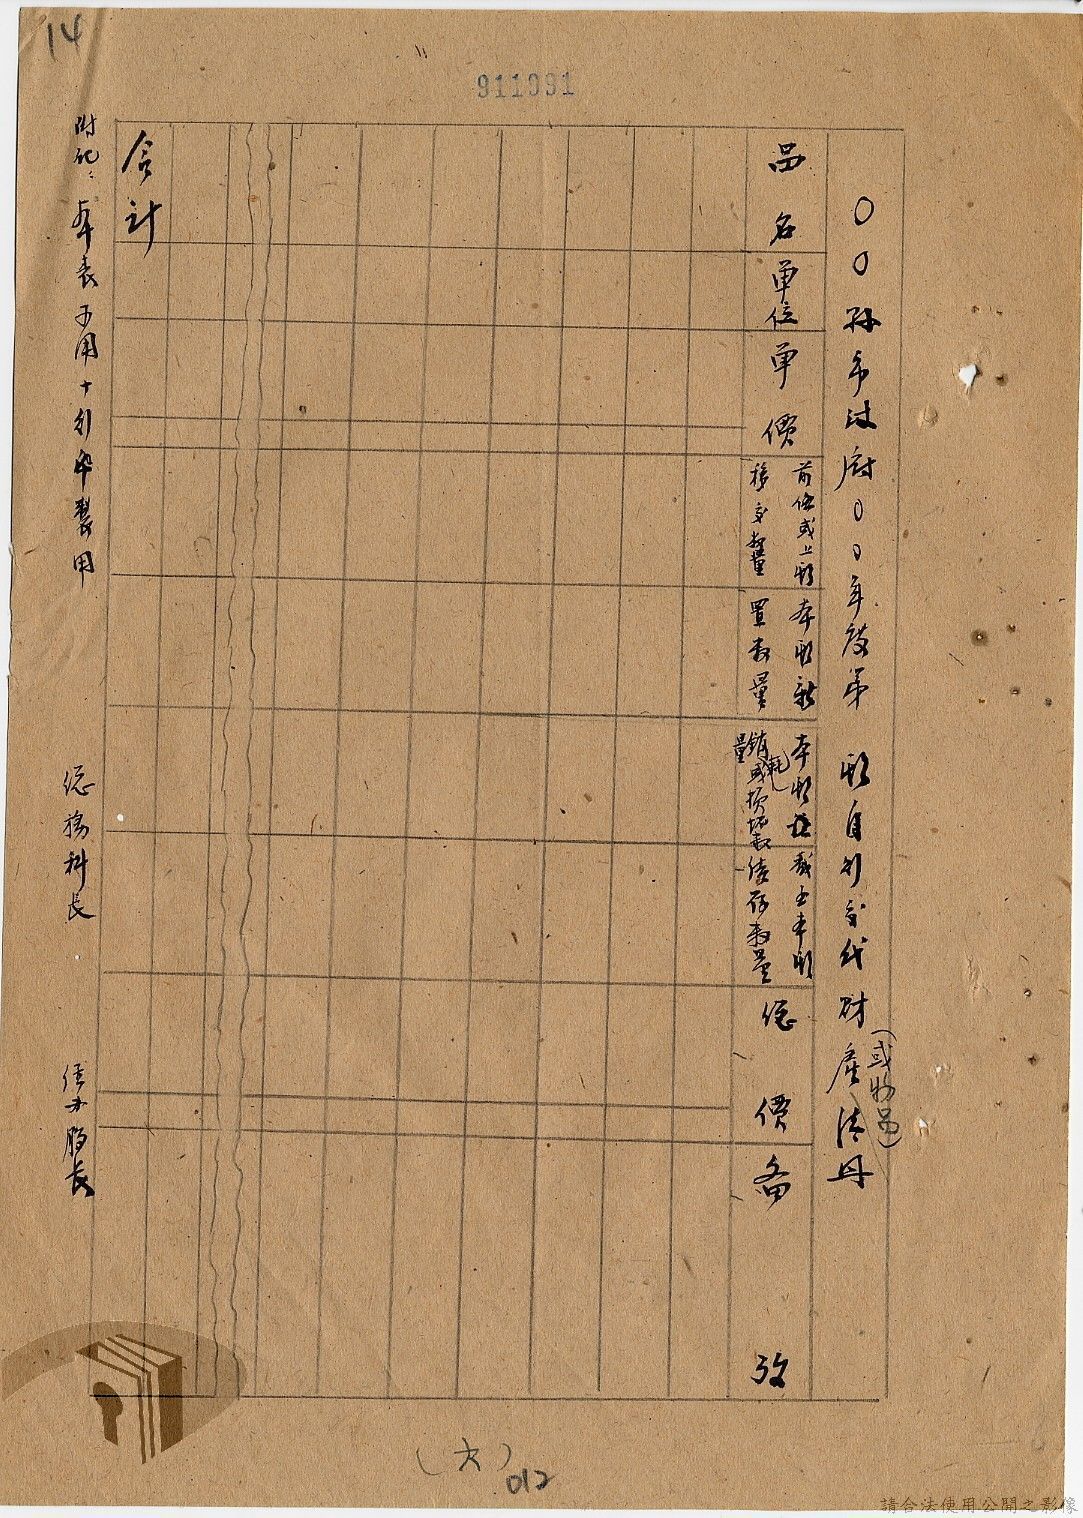 14
911091
〇〇縣市政府〇〇年度第 期自行交代財產清冊
(或物品)
品名
單位
單價
前任或上期
移交數量
本期新
置數量
本期
銷耗或損壞數
量
截至本期
結存數量
總價
備攷
合計
附記:本表可用十行紙製用
總務科長
經办股長
(六)
012
請合法使用公開之影像